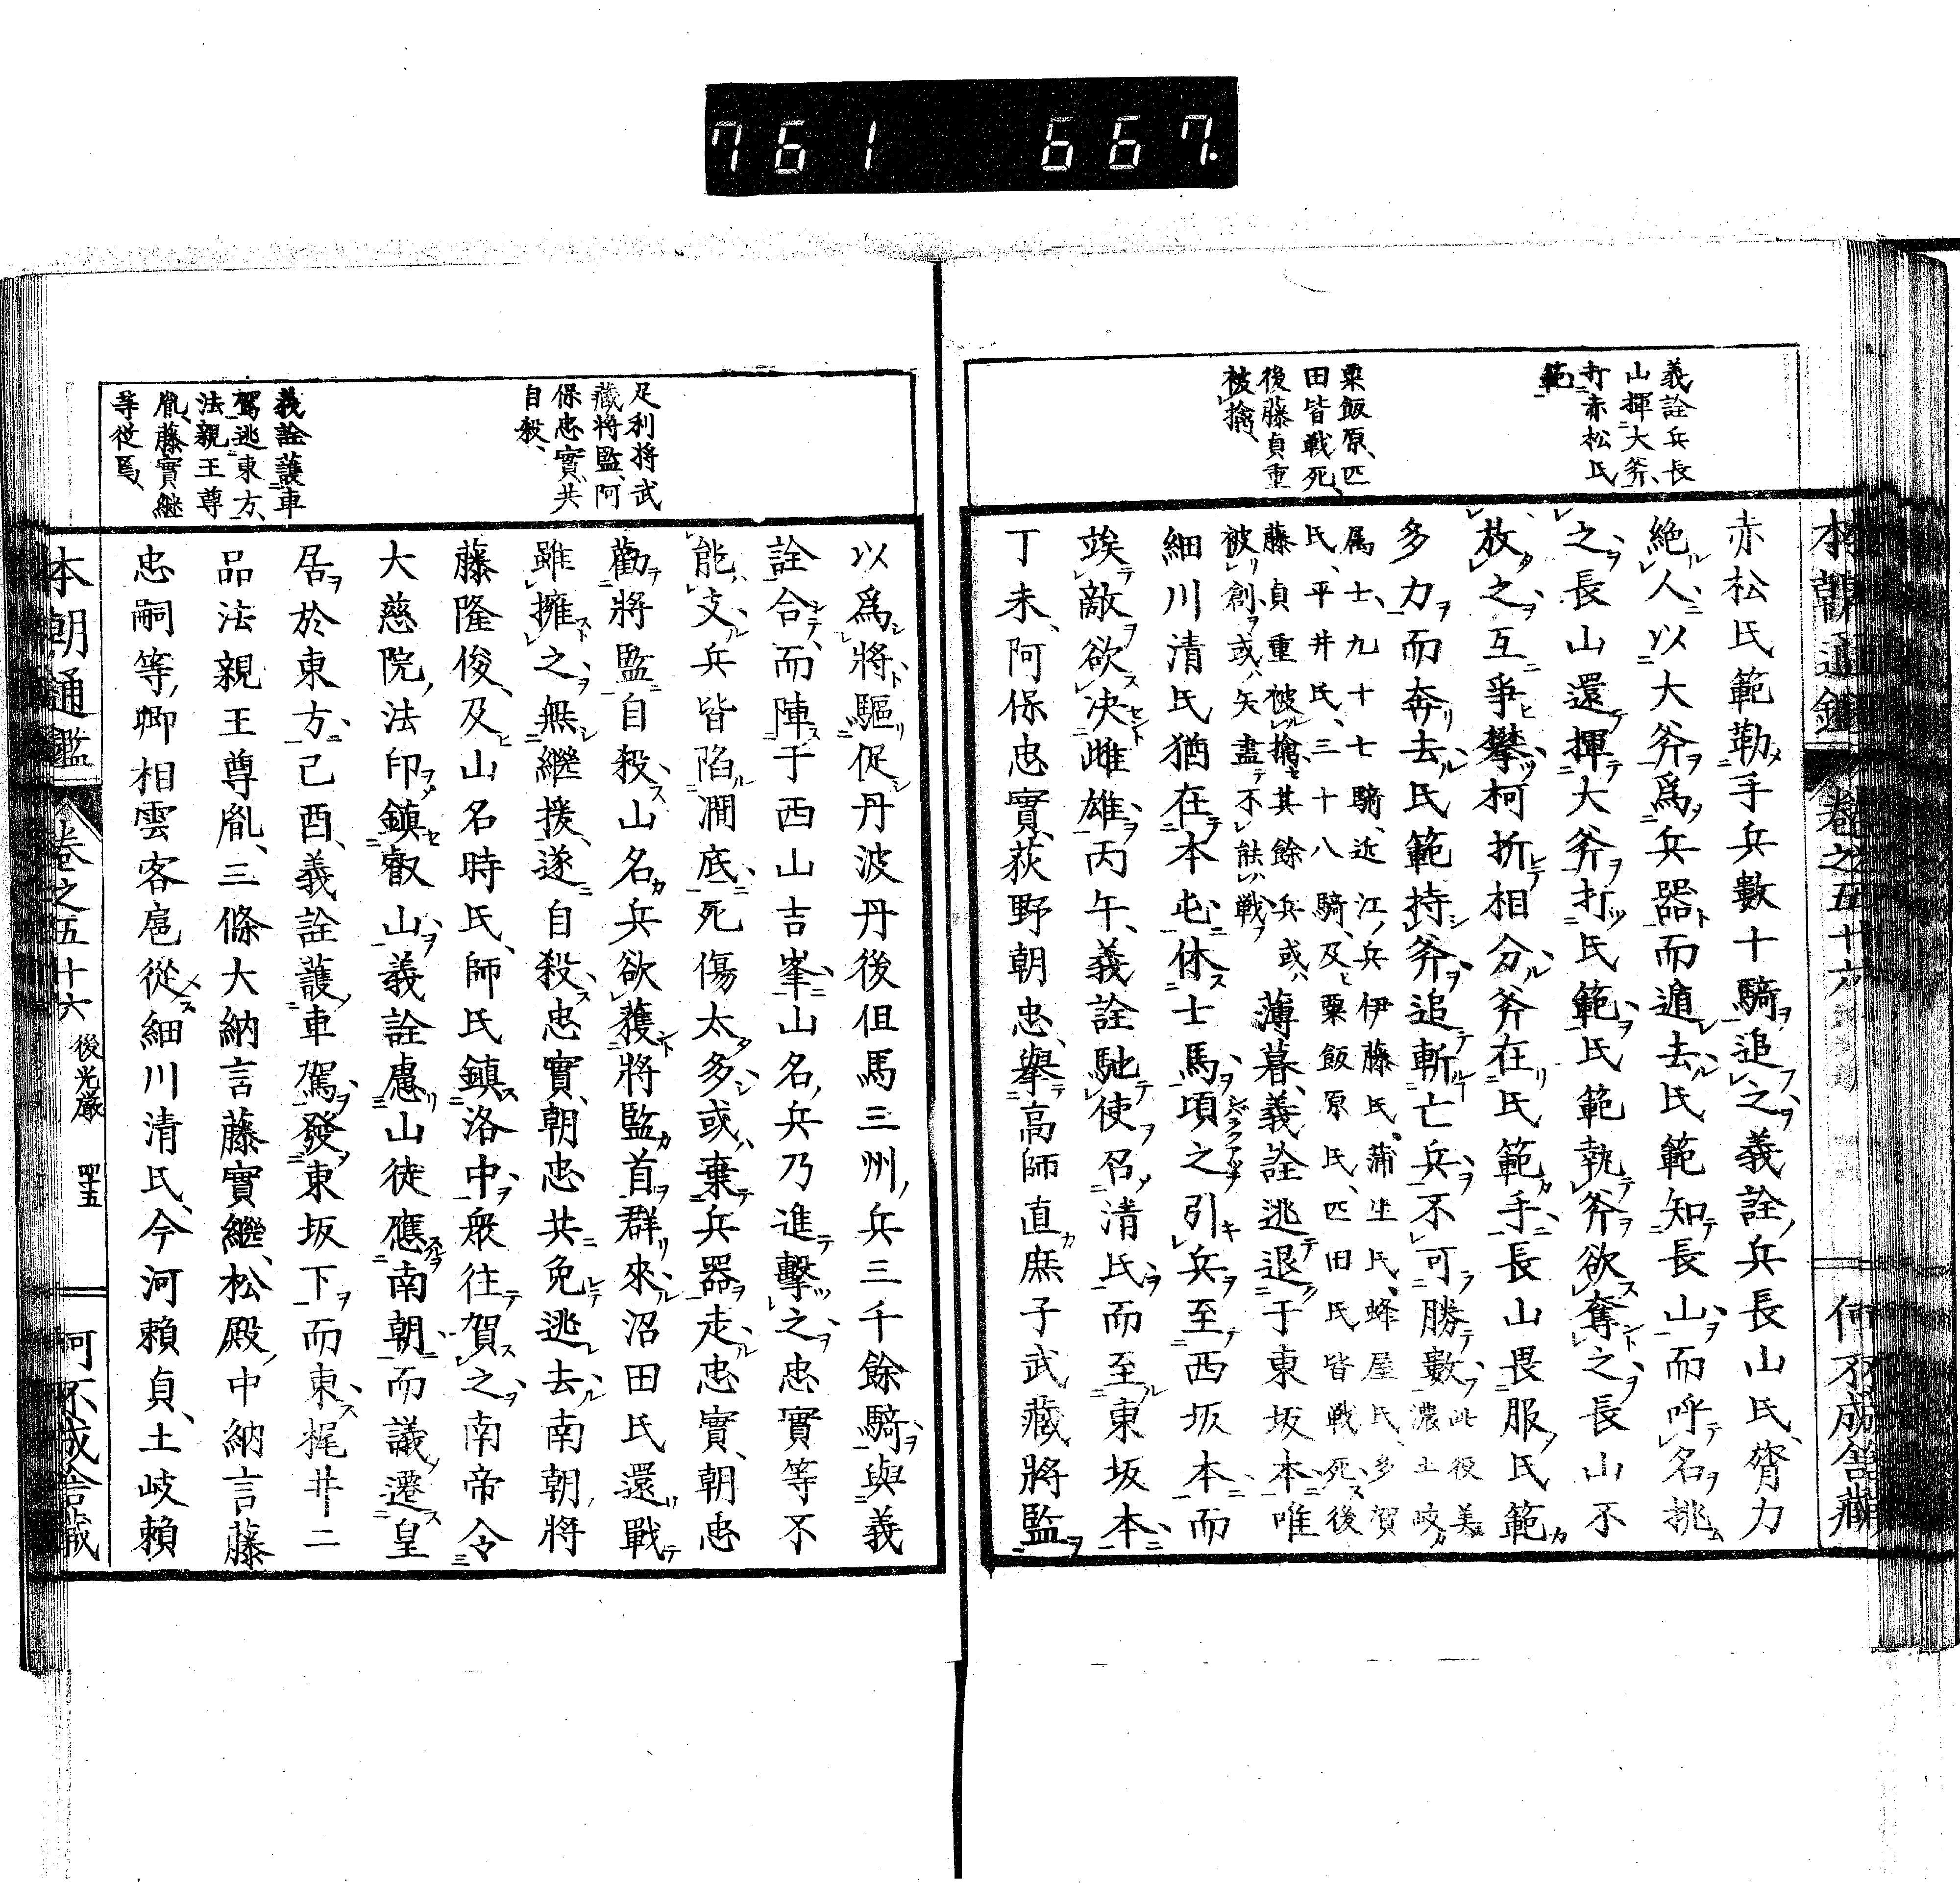 761 667.
本朝通鑑 卷之五十六 何不成舍藏
義詮兵長
山揮大斧、
打赤松氏
範
粟飯原、匹
田皆戰死、
後藤貞重
被擒、
赤松氏範勒手兵數十騎追之義詮兵長山氏、膂力
絶人以大斧爲兵器而遁去氏範知長山而呼名挑
之長山還揮大斧打氏範氏範執斧欲奪之長山不
放之互爭攀柯折相分斧在氏範手長山畏服氏範
多力而奔去氏範持斧追斬亡兵不可勝數此役美
濃土岐
属士、九十七騎、近江兵伊藤氏、蒲生氏、蜂屋氏、多賀
氏、平井氏、三十八騎、及粟飯原氏、匹田氏皆戰死、後
藤貞重被擒、其餘兵或
被創、或矢盡不能戰
薄暮、義詮逃退于東坂本唯
細川清氏猶在本屯休士馬頃之引兵至西坂本而
竢敵欲决雌雄丙午、義詮馳使召清氏而至東坂本
丁未、阿保忠實、荻野朝忠、擧高師直庶子武藏將監
足利將武
藏將監、阿
保忠實、共
自殺、
義詮護車
駕逃東方、
法親王尊
胤、藤實繼
等從焉、
以爲將驅促丹波丹後但馬三州兵三千餘騎與義
詮合而陣于西山吉峯山名兵乃進擊之忠實等不
能支兵皆陷澗底死傷太多或棄兵器走忠實、朝忠
勸將監自殺山名兵欲獲將監首群來沼田氏還戰
雖擁之無繼援、遂自殺忠實、朝忠共免逃去南朝將
藤隆俊、及山名時氏、師氏鎮洛中衆往賀之南帝令
大慈院法印鎮叡山義詮慮山徒應南朝而議遷皇
居於東方己酉、義詮護車駕發東坂下而東梶井二
品法親王尊胤、三條大納言藤實繼、松殿中納言藤
忠嗣等卿相雲客扈從細川清氏、今河賴貞、土岐賴
本朝通鑑 卷之五十六 後光嚴 四十五 何不成舍藏